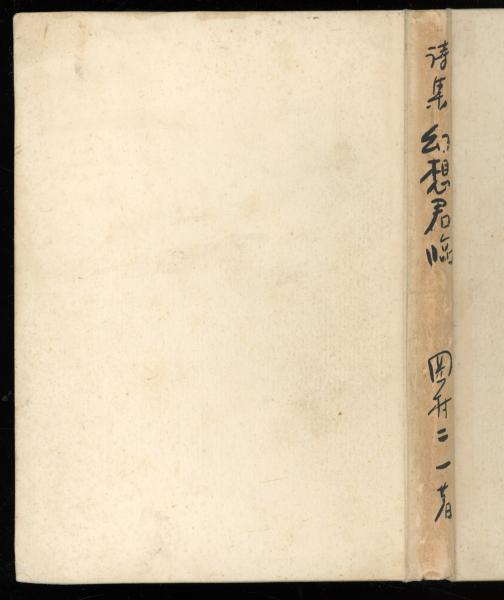 詩集 幻想君臨 岡村二一著